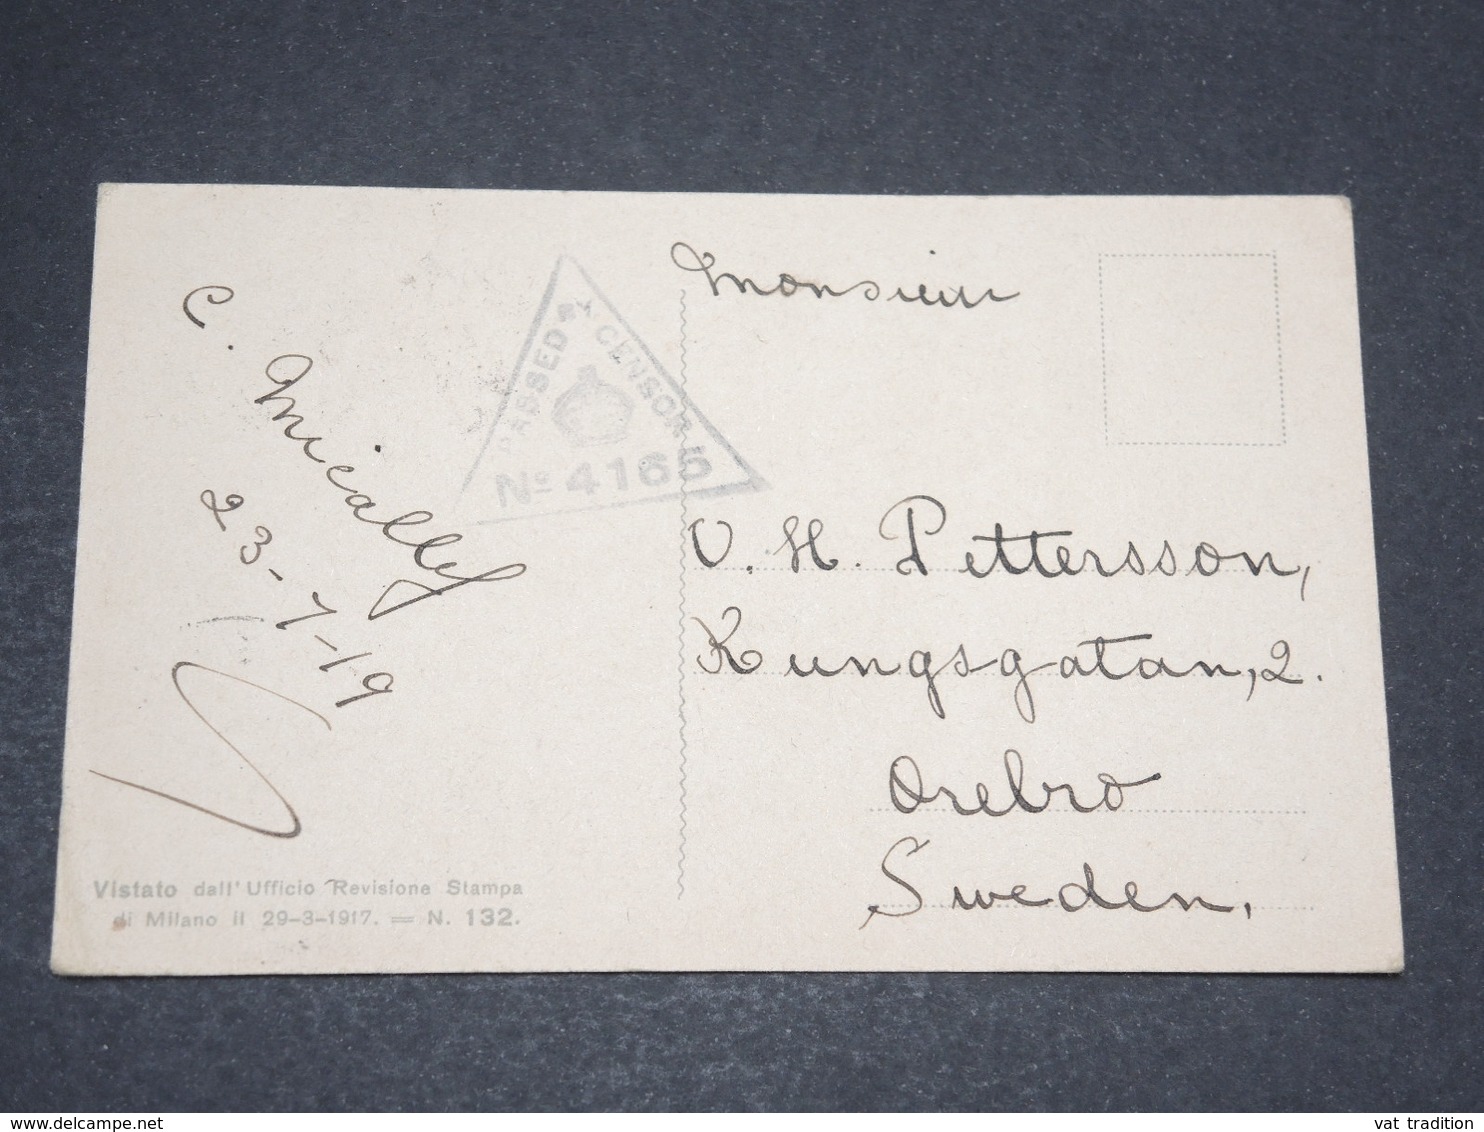 C. Micallef
23-7-19
PASSED BY CENSOR
No 4165
Vistato dall' Ufficio Revisione Stampa
di Milano il 29-3-1917. = N. 132.
Monsieur
V. H. Pettersson,
Kungsgatan, 2.
Orebro
Sweden,
delcampe.net
vat tradition